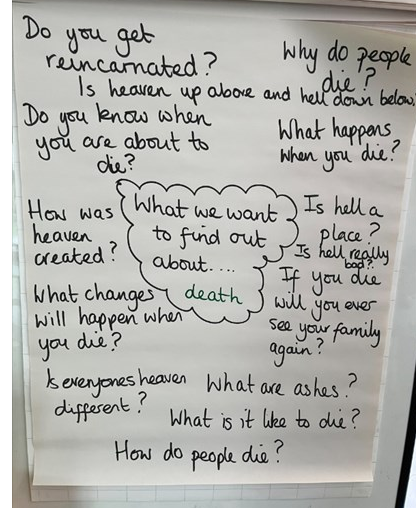 Do you get
reincarnated?
Why do people
die?
Is heaven up above and hell down below?
Do you know when
you are about to
die?
What happens
when you die?
How was
heaven
created?
What we want
to find out
about....
death
Is hell a
place?
Is hell really
bad?
If you die
will you ever
see your family
again?
What changes
will happen when
you die?
Is everyones heaven
different?
What are ashes?
What is it like to die?
How do people die?